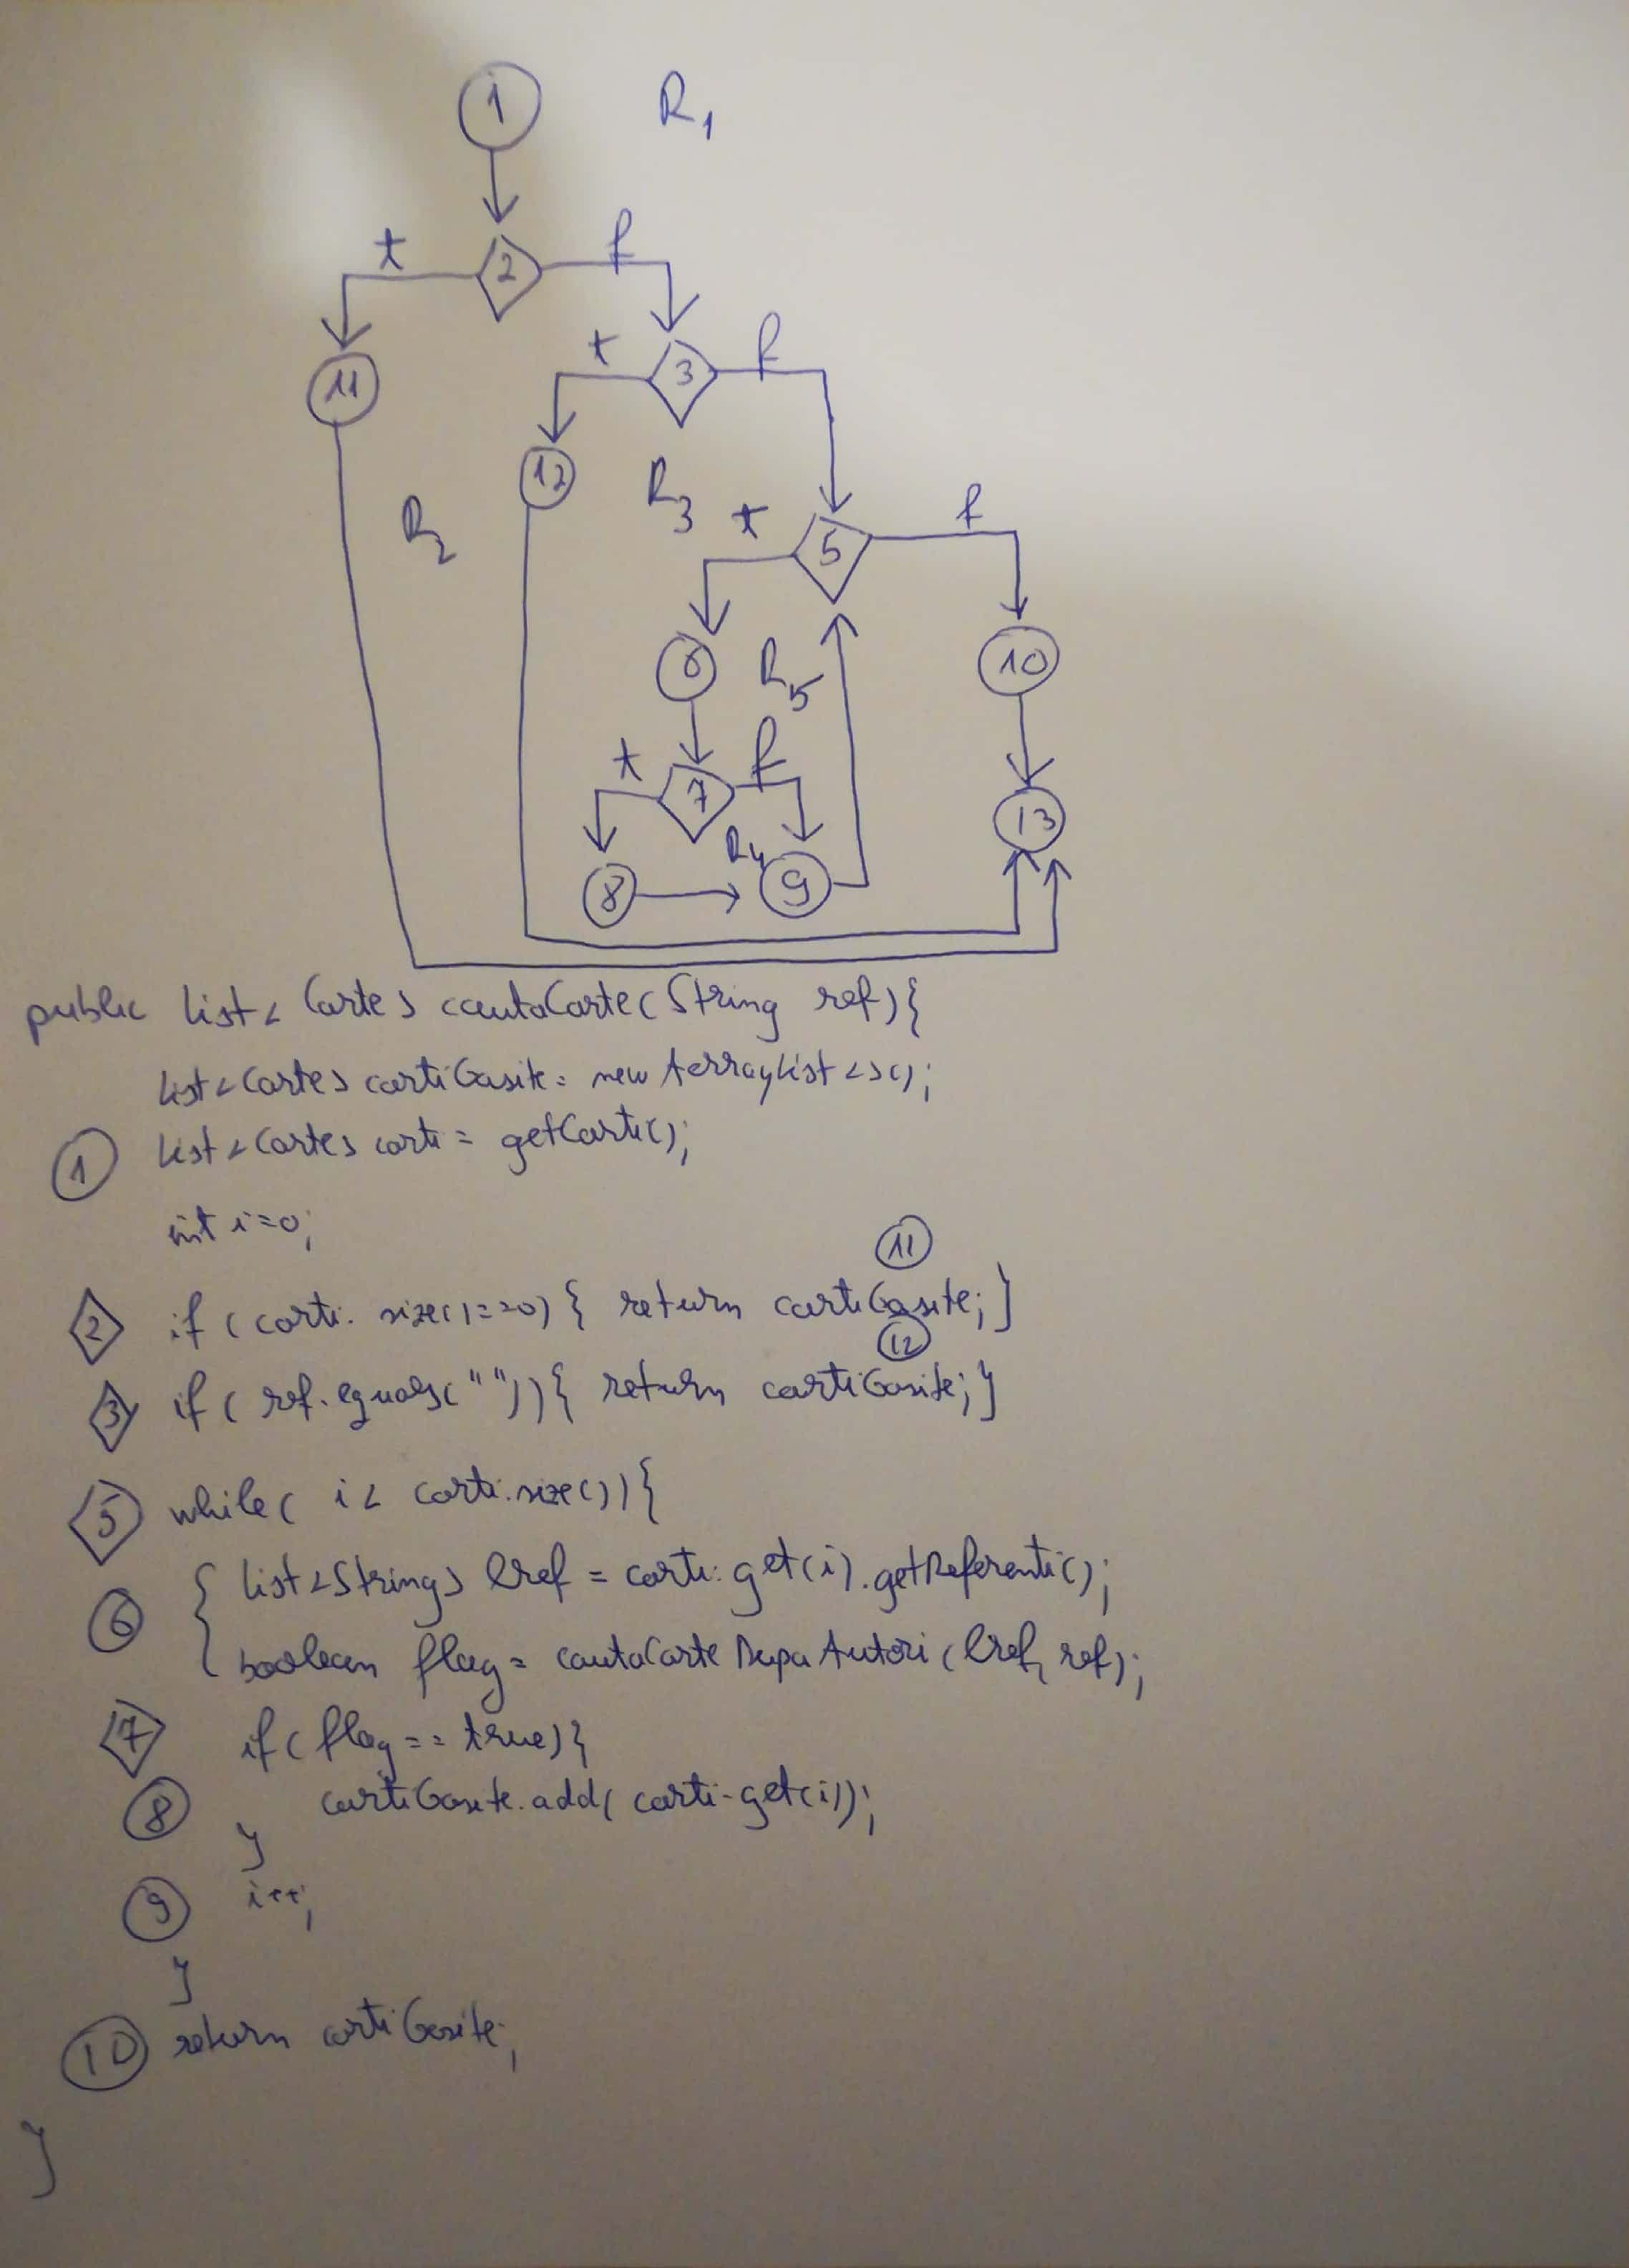 1 R1
t 2 f
t 3 f
11
12 R3
R2 t 5 f
6 R5 10
t 7 f
R4 13
8 9
public List<Carte> cautaCarte(String ref){
List<Carte> cartiGasite = new ArrayList<>();
1 List<Carte> carti = getCarti();
int i=0;
11
2 if (carti.size()==0) { return cartiGasite; }
12
3 if ( ref.equals("")){ return cartiGasite; }
5 while( i < carti.size()){
{ List<String> lref = carti.get(i).getReferenti();
6
boolean flag = cautaCarteDupaAutori(lref, ref);
7 if (flag == true){
8 cartiGasite.add( carti.get(i));
}
9 i++;
}
10 return cartiGasite;
}